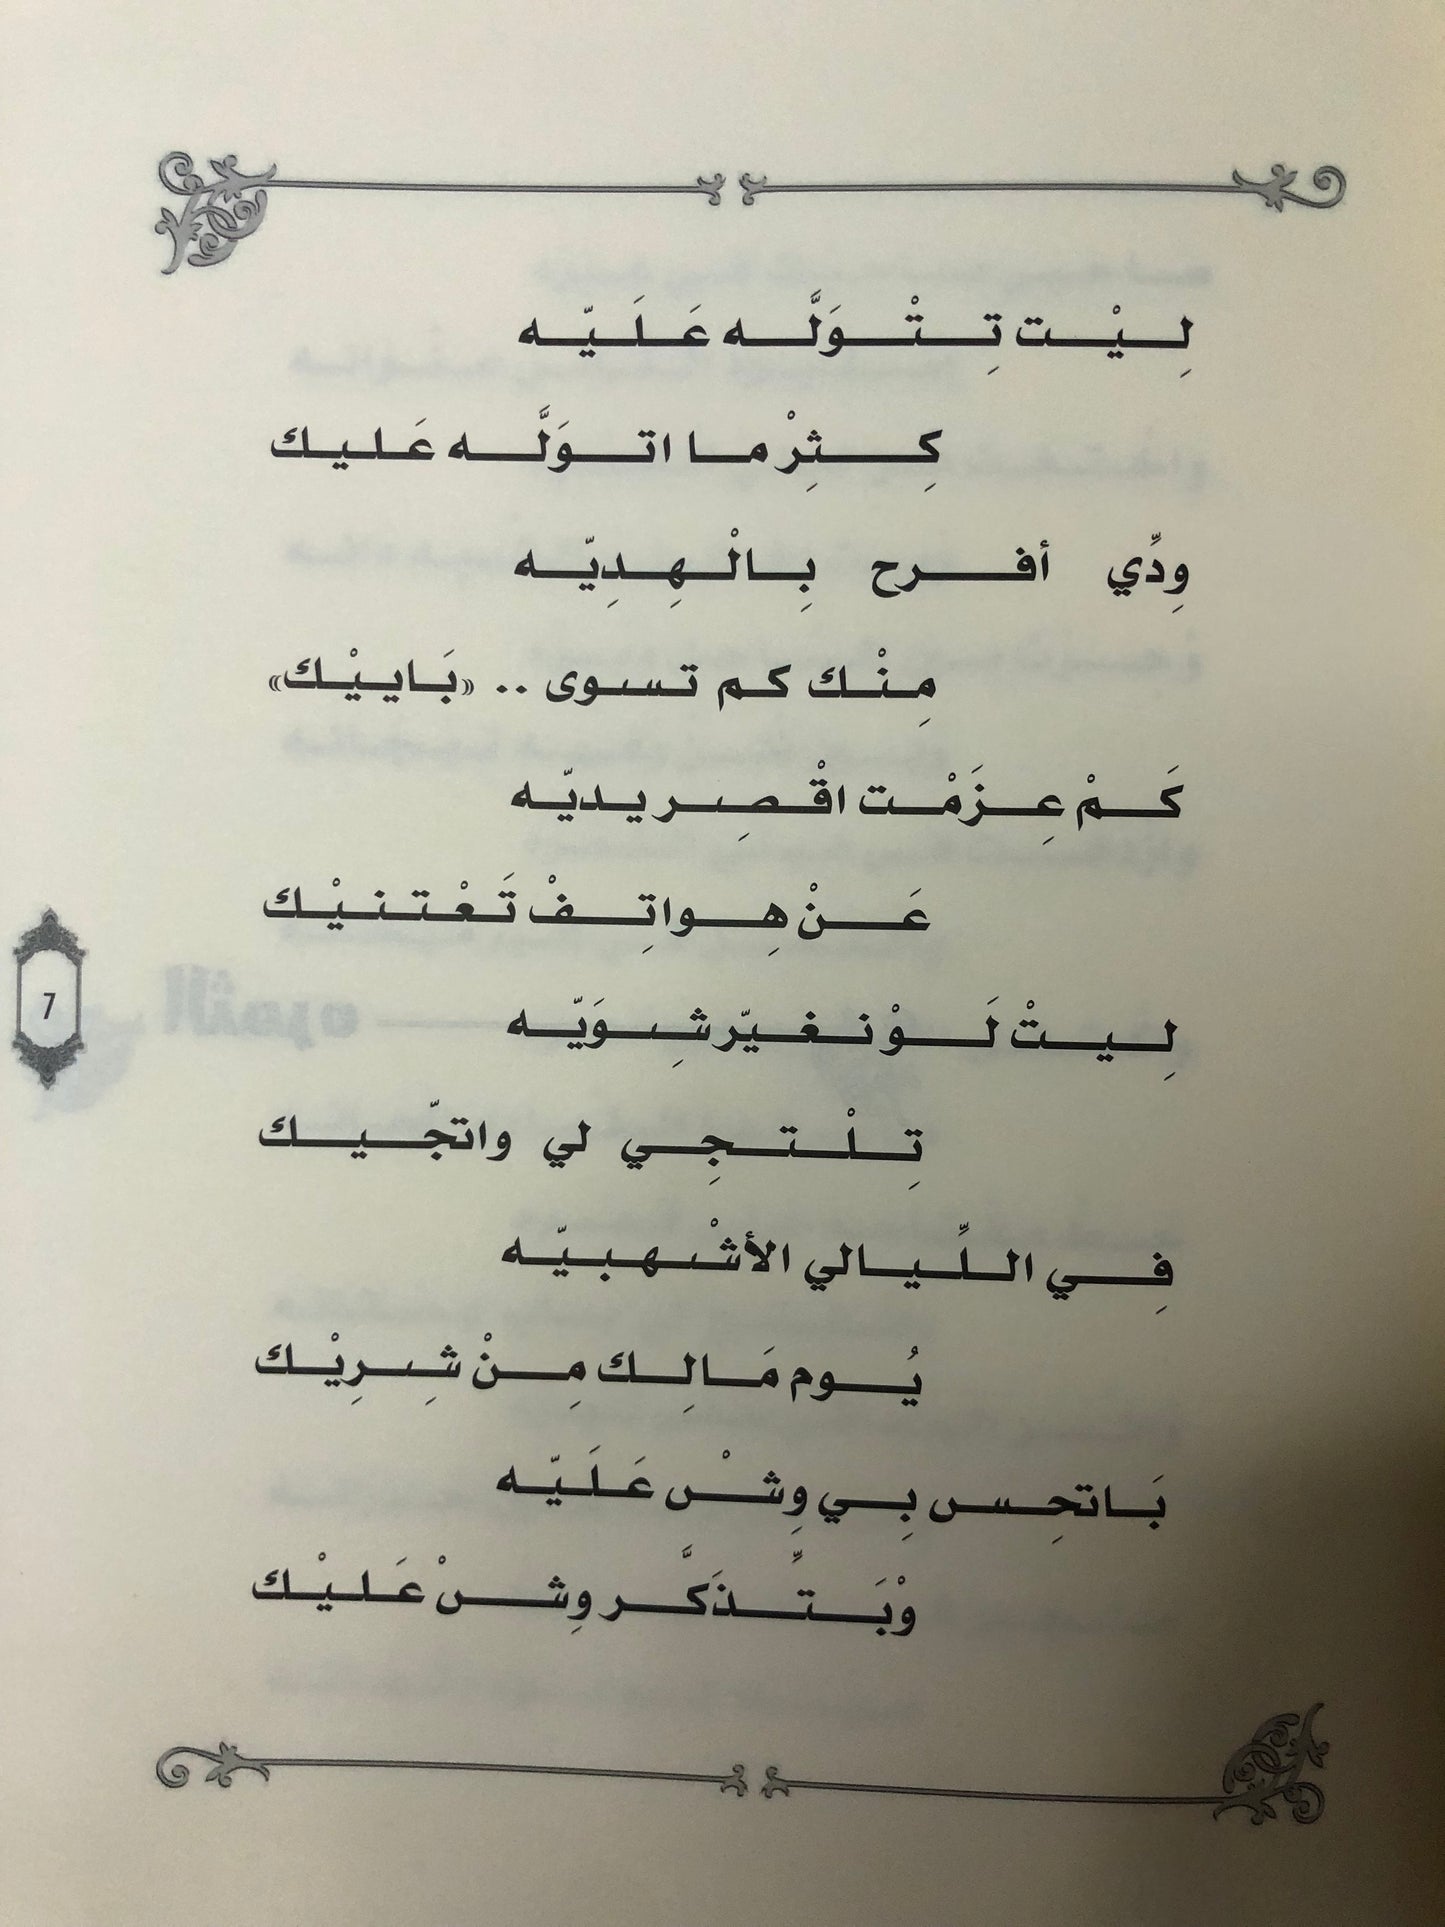 لِيْت تِتْوَلَّه عَلَيّه
كِثِرْ ما اتوَلَّه عَليك
وِدِّي أفرح بِالْهِدِيّه
مِنْك كم تسوى .. «بَاييْك»
كَمْ عِزَمْت اقْصِر يديّه
عَنْ هِواتِفْ تَعْتنيْك
لِيتْ لَوْ نغيّر شِوَيّه
تِلْتجِي لي واتجّيك
فِي اللِّيالي الأشْهبيّه
يُوم مَالِك مِنْ شِرِيْك
بَاتحِس بِي وِشْ عَلَيّه
وْبَتِّذَكَّر وِشْ عَليْك
7